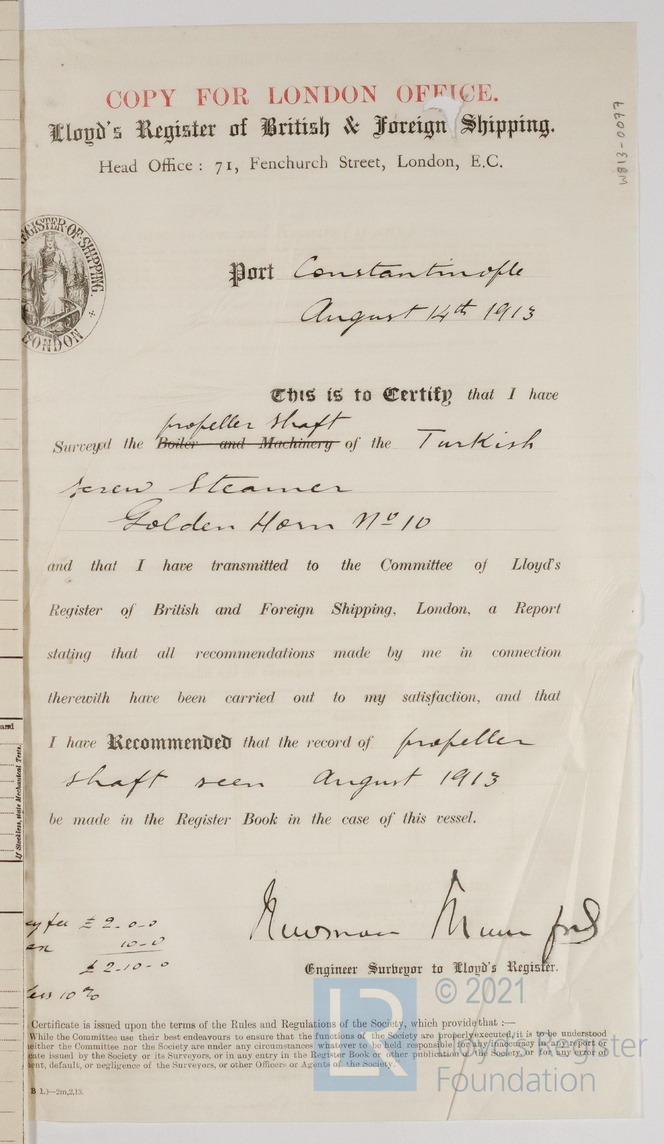 COPY FOR LONDON OFFICE.
Lloyd's Register of British & Foreign Shipping.
Head Office : 71, Fenchurch Street, London, E.C.
W813-0097
GISTER·OF·SHIPPING.
LONDON
Port Constantinople
August 14th 1913
This is to Certify that I have
propeller shaft
Surveyed the Boiler and Machinery of the Turkish
screw steamer
Golden Horn No 10
and that I have transmitted to the Committee of Lloyd's
Register of British and Foreign Shipping, London, a Report
stating that all recommendations made by me in connection
therewith have been carried out to my satisfaction, and that
I have Recommended that the record of propeller
shaft seen August 1913
be made in the Register Book in the case of this vessel.
and
If Stockless, state Mechanical Tests.
Newman Mumford
Engineer Surveyor to Lloyd's Register.
ey fee £ 2-0-0
10-0
£ 2-10-0
less 10%
Certificate is issued upon the terms of the Rules and Regulations of the Society, which provide that :—
While the Committee use their best endeavours to ensure that the functions of the Society are properly executed, it is to be understood
either the Committee nor the Society are under any circumstances whatever to be held responsible for any inaccuracy in any report or
cate issued by the Society or its Surveyors, or in any entry in the Register Book or other publication of the Society, or for any error of
ent, default, or negligence of the Surveyors, or other Officers or Agents of the Society.
B 1.)—2m,2,13.
LR
© 2021
Lloyd's Register
Foundation